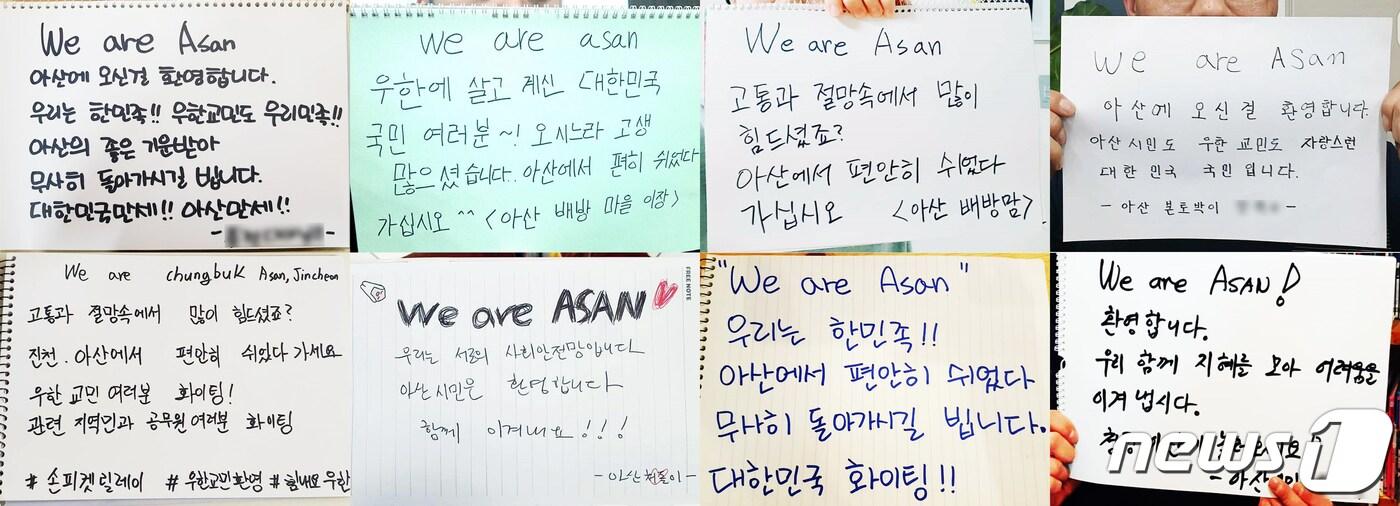 We are Asan
아산에 오신걸 환영합니다.
우리는 한민족!! 우한교민도 우리민족!!
아산의 좋은 기운받아
무사히 돌아가시길 빕니다.
대한민국만세!! 아산만세!!
We are asan
우한에 살고 계신 대한민국
국민 여러분~! 오시느라 고생
많으셨습니다. 아산에서 편히 쉬었다
가십시오 ^^ <아산 배방 마을 이장>
We are Asan
고통과 절망속에서 많이
힘드셨죠?
아산에서 편안히 쉬었다
가십시오 <아산 배방맘>.
We are ASan
아산에 오신걸 환영합니다.
아산시민도 우한 교민도 자랑스런
대한민국 국민입니다.
- 아산 본토박이
We are chungbuk Asan, Jincheon
고통과 절망속에서 많이 힘드셨죠?
진천.아산에서 편안히 쉬었다 가세요
우한 교민 여러분 화이팅!
관련 지역민과 공무원여러분 화이팅
# 손피켓릴레이 # 우한교민환영 # 힘내요우한
FREE NOTE
We are ASAN
우리는 서로의 사회안전망입니다
아산시민은 환영합니다
함께 이겨내요!!!
"We are Asan"
우리는 한민족!!
아산에서 편안히 쉬었다
무사히 돌아가시길 빕니다.
대한민국 화이팅!!
We are ASAN!
환영합니다.
우리 함께 지혜를 모아 어려움을
이겨냅시다.
news1